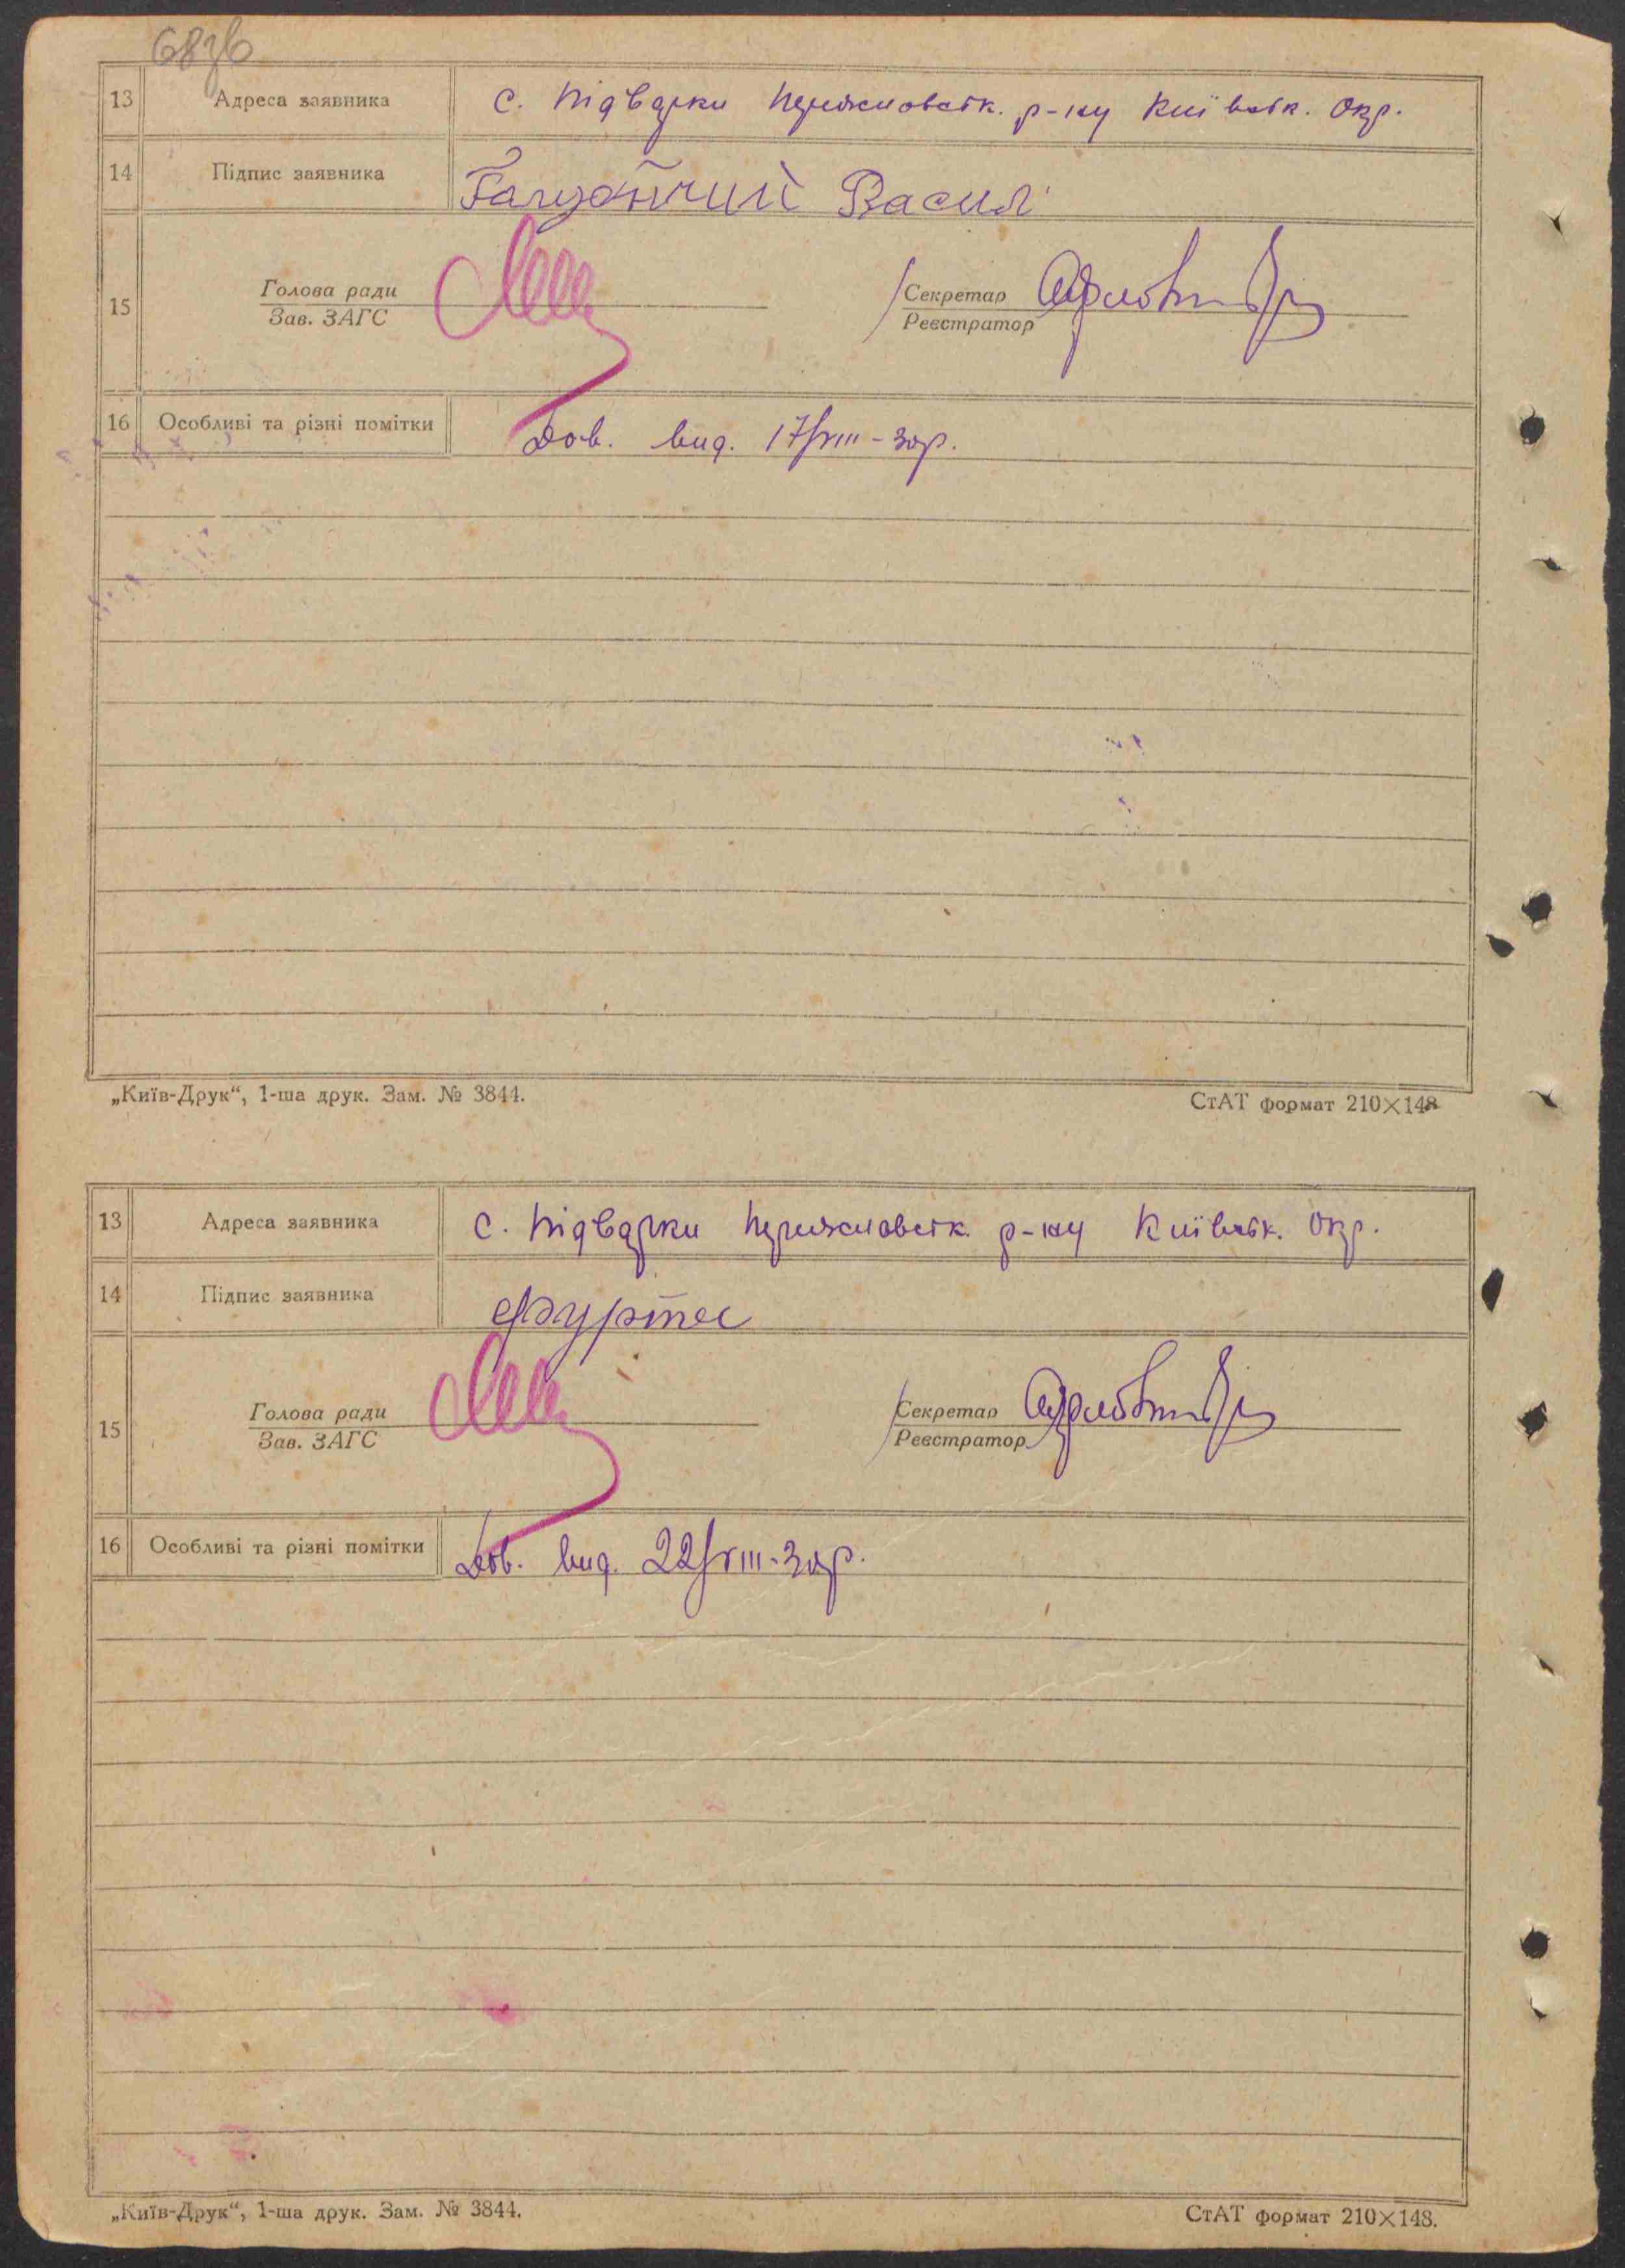 68зв
13 Адреса заявника с. Підварки р-ну Київськ. Окр.
14 Підпис заявника Василь
15 Голова ради Секретар
Зав. ЗАГС Реєстратор
16 Особливі та різні помітки Дов. вид. 17/VIII-30р.
„Київ-Друк“, 1-ша друк. Зам. № 3844. СтАТ формат 210×148
13 Адреса заявника с. Підварки р-ну Київськ. Окр.
14 Підпис заявника
15 Голова ради Секретар
Зав. ЗАГС Реєстратор
16 Особливі та різні помітки Дов. вид. 22/VIII-30р.
„Київ-Друк“, 1-ша друк. Зам. № 3844. СтАТ формат 210×148.